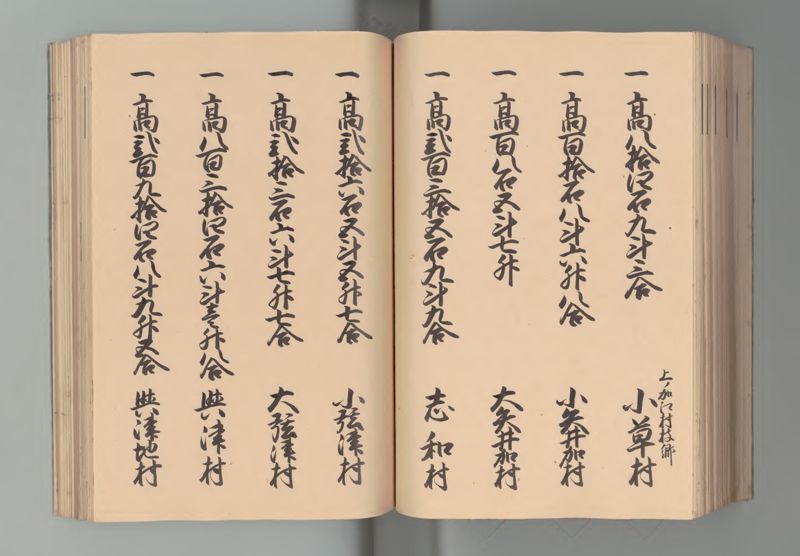 一 高八拾四石九斗三合
上ノ加江村枝郷
小草村
一 高百拾石八斗六升八合 小矢井加村
一 高百八石五斗七升 大矢井加村
一 高弐百三拾五石九斗九合 志和村
一 高弐拾六石五斗五升七合 小弦津村
一 高弐拾三石六斗七升七合 大弦津村
一 高八百三拾四石六斗壱升八合 與津村
一 高弐百九拾四石八斗九升五合 與津地村